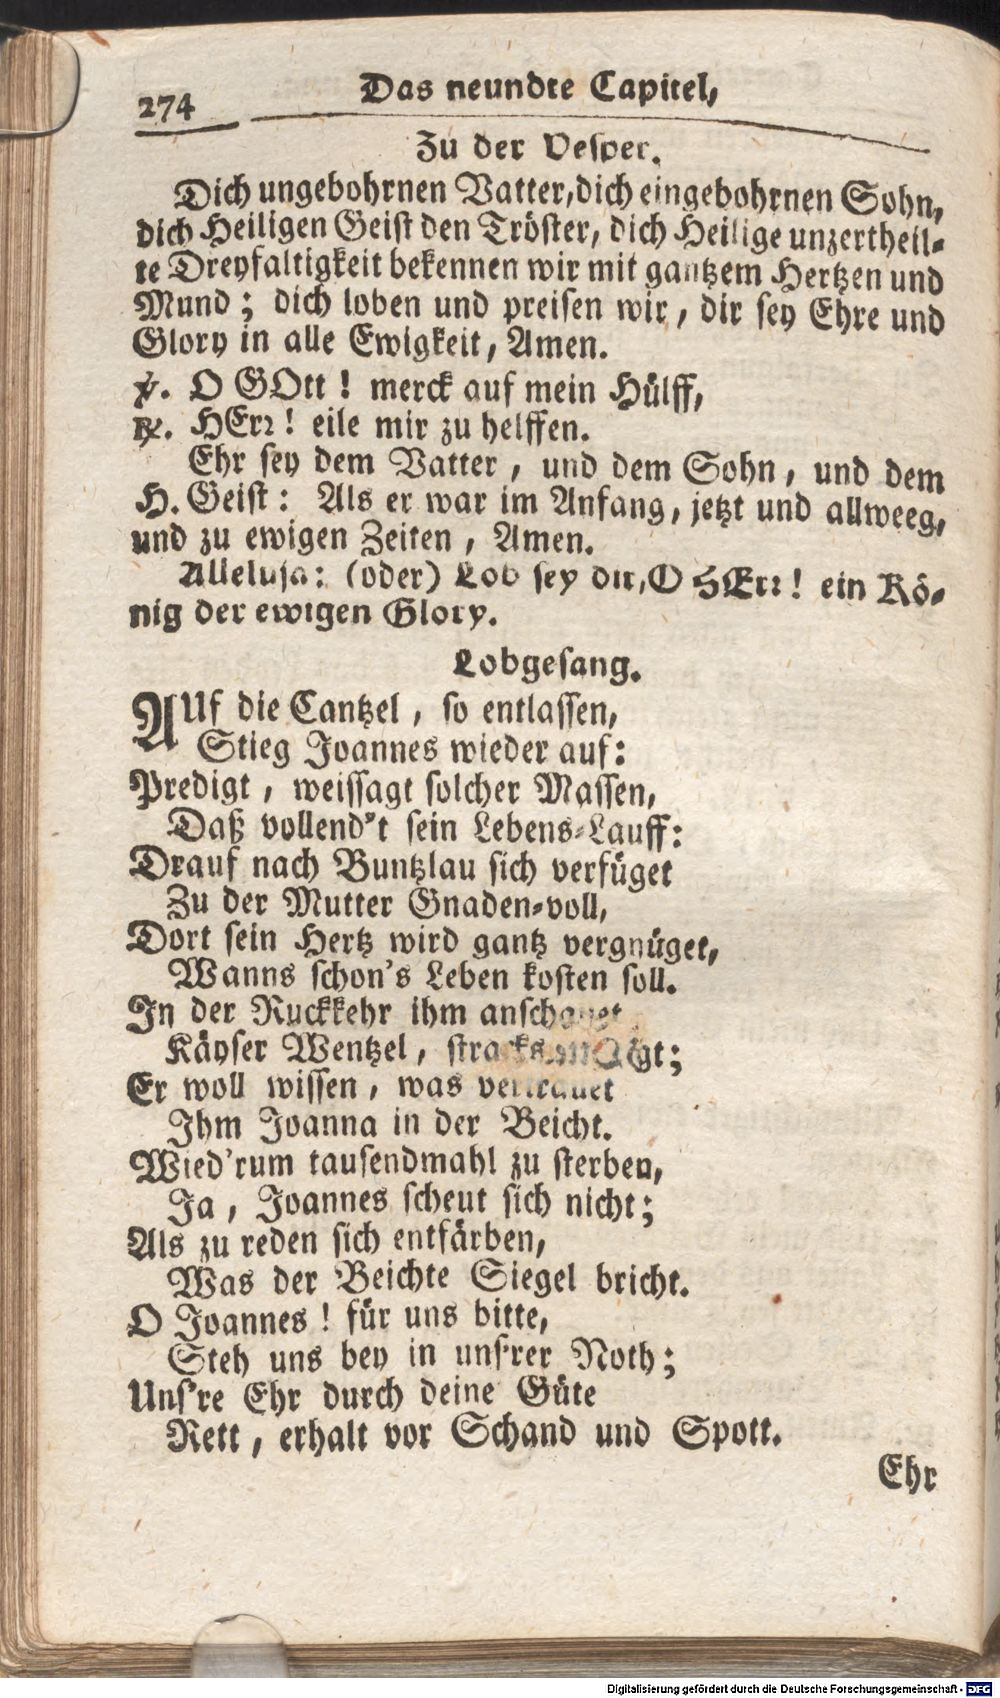 274
Das neundte Capitel,
Zu der Vesper.
Dich ungebohrnen Vatter, dich eingebohrnen Sohn,
dich Heiligen Geist den Tröster, dich Heilige unzertheil-
te Dreyfaltigkeit bekennen wir mit gantzem Hertzen und
Mund; dich loben und preisen wir, dir sey Ehre und
Glory in alle Ewigkeit, Amen.
℣. O GOtt! merck auf mein Hülff,
℟. HErr! eile mir zu helffen.
Ehr sey dem Vatter, und dem Sohn, und dem
H. Geist: Als er war im Anfang, jetzt und allweeg,
und zu ewigen Zeiten, Amen.
Alleluja: (oder) Lob sey dir, O HErr! ein Kö-
nig der ewigen Glory.
Lobgesang.
AUf die Cantzel, so entlassen,
Stieg Joannes wieder auf:
Predigt, weissagt solcher Massen,
Daß vollend't sein Lebens-Lauff:
Drauf nach Buntzlau sich verfüget
Zu der Mutter Gnaden-voll,
Dort sein Hertz wird gantz vergnüget,
Wanns schon's Leben kosten soll.
In der Ruckkehr ihm anschauet
Käyser Wentzel,
Er woll wissen, was vertrauet
Ihm Joanna in der Beicht.
Wied'rum tausendmahl zu sterben,
Ja, Joannes scheut sich nicht;
Als zu reden sich entfärben,
Was der Beichte Siegel bricht.
O Joannes! für uns bitte,
Steh uns bey in uns'rer Noth;
Uns're Ehr durch deine Güte
Rett, erhalt vor Schand und Spott.
Ehr
Digitalisierung gefördert durch die Deutsche Forschungsgemeinschaft - DFG